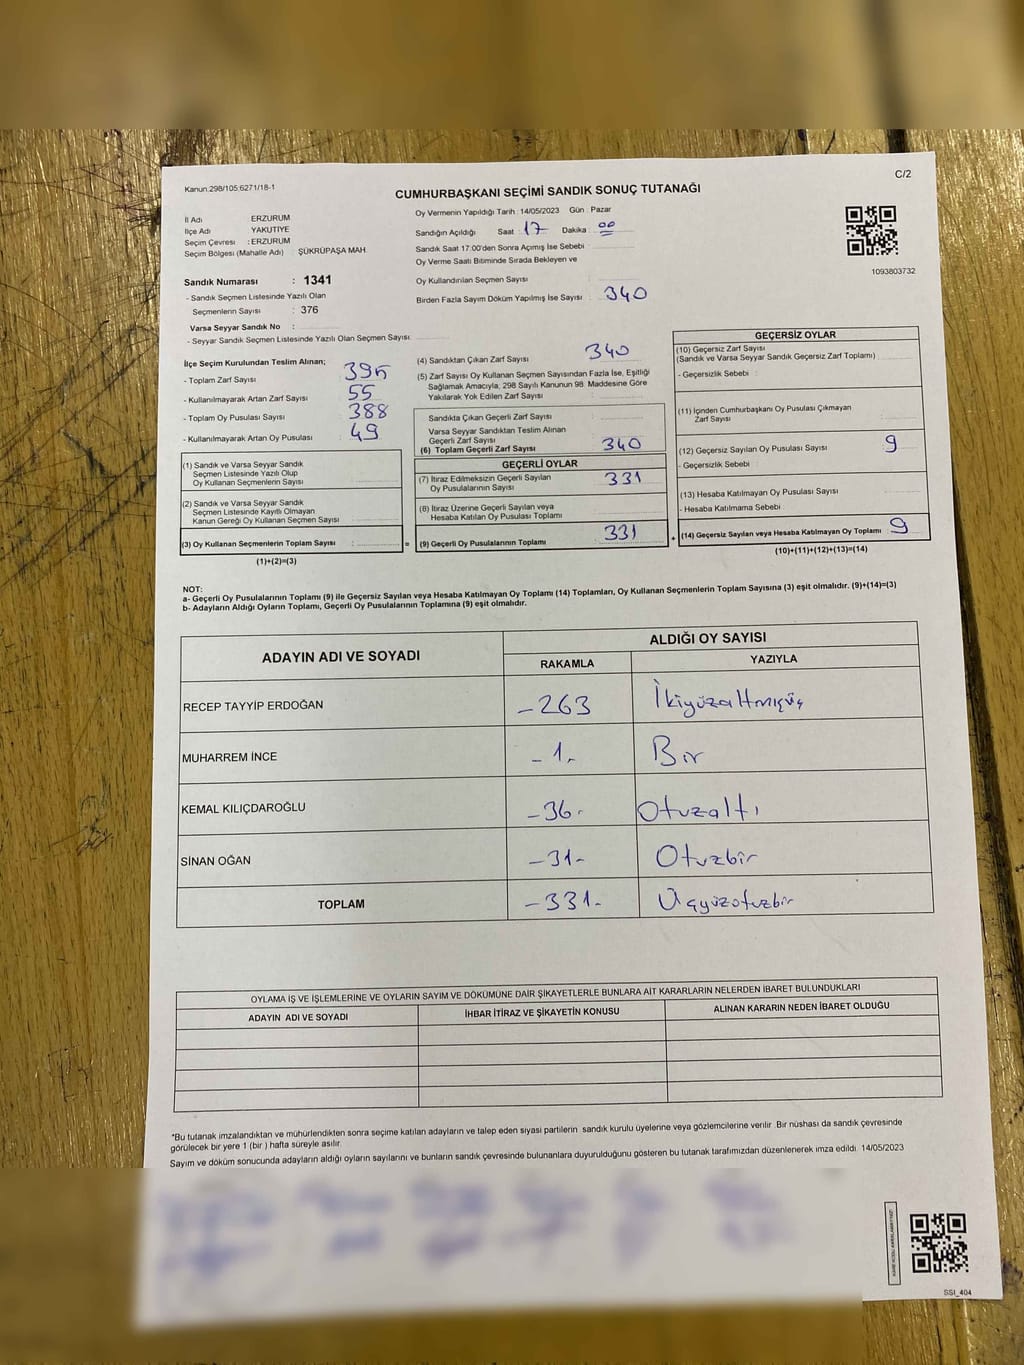 Kanun:298/105:6271/18-1
C/2
CUMHURBAŞKANI SEÇİMİ SANDIK SONUÇ TUTANAĞI
İl Adı : ERZURUM
İlçe Adı : YAKUTİYE
Seçim Çevresi : ERZURUM
Seçim Bölgesi (Mahalle Adı) ŞÜKRÜPAŞA MAH.
Sandık Numarası : 1341
- Sandık Seçmen Listesinde Yazılı Olan
Seçmenlerin Sayısı : 376
Varsa Seyyar Sandık No :
- Seyyar Sandık Seçmen Listesinde Yazılı Olan Seçmen Sayısı:
Oy Vermenin Yapıldığı Tarih : 14/05/2023 Gün : Pazar
Sandığın Açıldığı Saat : 17 Dakika : 00
Sandık Saat 17:00'den Sonra Açımış İse Sebebi :
Oy Verme Saati Bitiminde Sırada Bekleyen ve
Oy Kullandırılan Seçmen Sayısı :
Birden Fazla Sayım Döküm Yapılmış İse Sayısı : 340
1093803732
İlçe Seçim Kurulundan Teslim Alınan;
- Toplam Zarf Sayısı : 395
- Kullanılmayarak Artan Zarf Sayısı : 55
- Toplam Oy Pusulası Sayısı : 388
- Kullanılmayarak Artan Oy Pusulası : 49
(1) Sandık ve Varsa Seyyar Sandık
Seçmen Listesinde Yazılı Olup
Oy Kullanan Seçmenlerin Sayısı :
(2) Sandık ve Varsa Seyyar Sandık
Seçmen Listesinde Kayıtlı Olmayan
Kanun Gereği Oy Kullanan Seçmen Sayısı :
(3) Oy Kullanan Seçmenlerin Toplam Sayısı :
(1)+(2)=(3)
(4) Sandıktan Çıkan Zarf Sayısı : 340
(5) Zarf Sayısı Oy Kullanan Seçmen Sayısından Fazla İse, Eşitliği
Sağlamak Amacıyla, 298 Sayılı Kanunun 98. Maddesine Göre
Yakılarak Yok Edilen Zarf Sayısı :
Sandıkta Çıkan Geçerli Zarf Sayısı :
Varsa Seyyar Sandıktan Teslim Alınan
Geçerli Zarf Sayısı :
(6) Toplam Geçerli Zarf Sayısı : 340
GEÇERLİ OYLAR
(7) İtiraz Edilmeksizin Geçerli Sayılan
Oy Pusulalarının Sayısı : 331
(8) İtiraz Üzerine Geçerli Sayılan veya
Hesaba Katılan Oy Pusulası Toplamı :
= (9) Geçerli Oy Pusulalarının Toplamı : 331
GEÇERSİZ OYLAR
(10) Geçersiz Zarf Sayısı
(Sandık ve Varsa Seyyar Sandık Geçersiz Zarf Toplamı)
- Geçersizlik Sebebi :
(11) İçinden Cumhurbaşkanı Oy Pusulası Çıkmayan
Zarf Sayısı :
(12) Geçersiz Sayılan Oy Pusulası Sayısı : 9
- Geçersizlik Sebebi :
(13) Hesaba Katılmayan Oy Pusulası Sayısı :
- Hesaba Katılmama Sebebi :
+ (14) Geçersiz Sayılan veya Hesaba Katılmayan Oy Toplamı : 9
(10)+(11)+(12)+(13)=(14)
NOT:
a- Geçerli Oy Pusulalarının Toplamı (9) ile Geçersiz Sayılan veya Hesaba Katılmayan Oy Toplamı (14) Toplamları, Oy Kullanan Seçmenlerin Toplam Sayısına (3) eşit olmalıdır. (9)+(14)=(3)
b- Adayların Aldığı Oyların Toplamı, Geçerli Oy Pusulalarının Toplamına (9) eşit olmalıdır.
ADAYIN ADI VE SOYADI ALDIĞI OY SAYISI
RAKAMLA YAZIYLA
RECEP TAYYİP ERDOĞAN -263 İkiyüzaltmışüç
MUHARREM İNCE -1- Bir
KEMAL KILIÇDAROĞLU -36- Otuzaltı
SİNAN OĞAN -31- Otuzbir
TOPLAM -331- Üçyüzotuzbir
OYLAMA İŞ VE İŞLEMLERİNE VE OYLARIN SAYIM VE DÖKÜMÜNE DAİR ŞİKAYETLERLE BUNLARA AİT KARARLARIN NELERDEN İBARET BULUNDUKLARI
ADAYIN ADI VE SOYADI İHBAR İTİRAZ VE ŞİKAYETİN KONUSU ALINAN KARARIN NEDEN İBARET OLDUĞU
*Bu tutanak imzalandıktan ve mühürlendikten sonra seçime katılan adayların ve talep eden siyasi partilerin sandık kurulu üyelerine veya gözlemcilerine verilir. Bir nüshası da sandık çevresinde
görülecek bir yere 1 (bir ) hafta süreyle asılır.
Sayım ve döküm sonucunda adayların aldığı oyların sayılarını ve bunların sandık çevresinde bulunanlara duyurulduğunu gösteren bu tutanak tarafımızdan düzenlenerek imza edildi. 14/05/2023
SSI_404